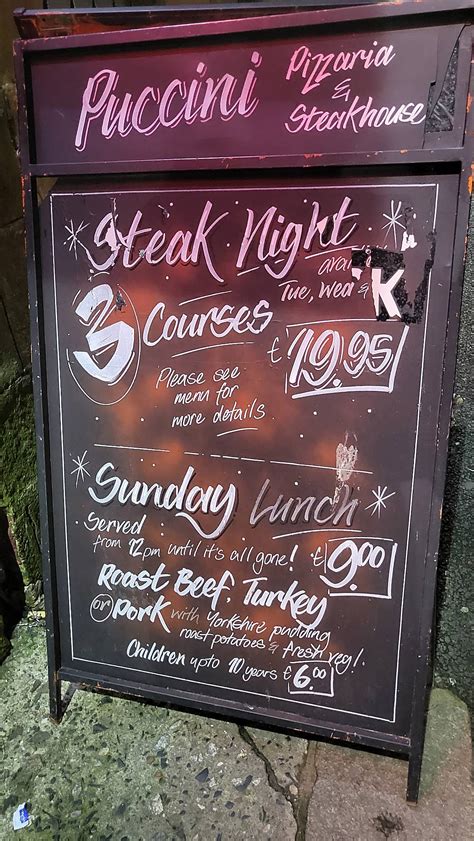 Puccini Pizzaria
&
Steakhouse
Steak Night
Tue, Wed & K
3 Courses £19.95
Please see
menu for
more details
Sunday Lunch
Served
from 12pm until it's all gone! £9.00
Roast Beef, Turkey
or Pork with Yorkshire pudding
roast potatoes & fresh veg!
Children upto 10 years £6.00